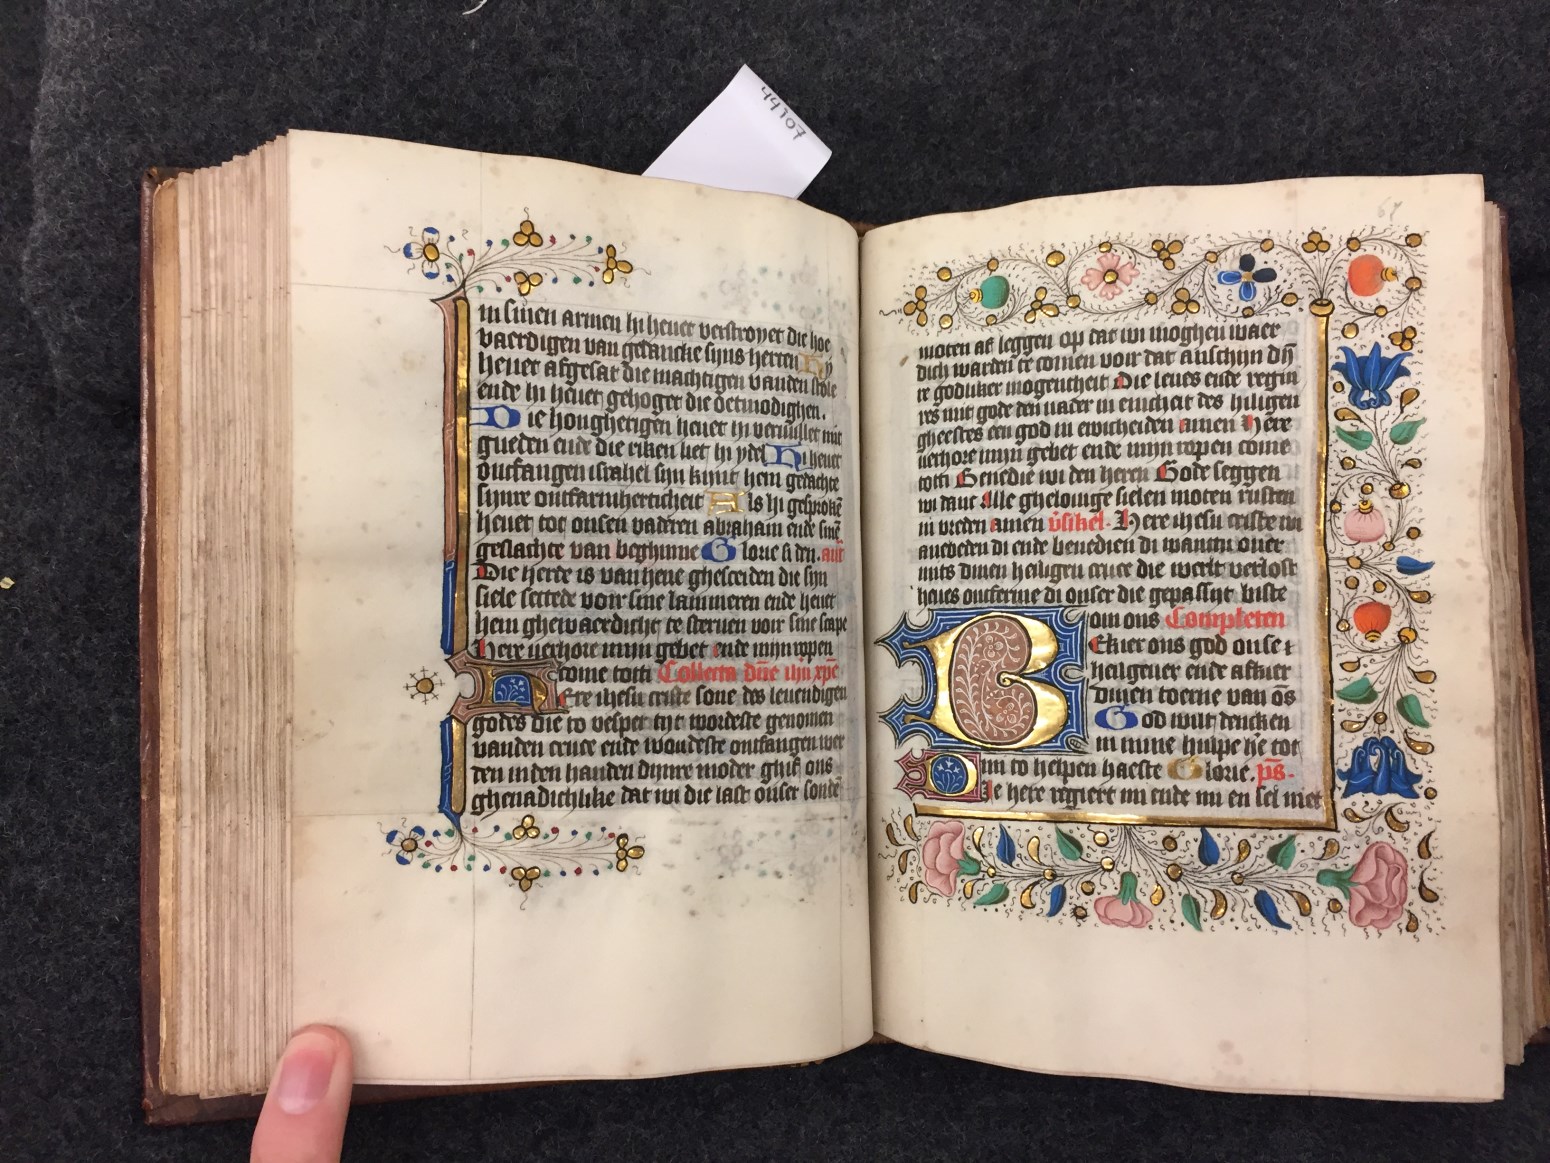 44107
in sinen armen hi heuet verstroyet die hoe
vaerdigen van gedancke sijns herten Hy
heuet afgesat die machtigen vanden stole
ende hi heuet gehoget die oetmodighen.
Die hongherigen heuet hi veruullet mit
gueden ende die riken liet hi ydel Hi heuet
ontfangen israhel sijn kint hem gedachte
sijnre ontfarmherticheit Als hi gesprokē
heuet tot onsen vaderen abraham ende sinē
geslachte van beghinne Glorie si den. ant
Die herde is van heue ghesceiden die sijn
siele settede voir sine lammeren ende heuet
hem ghewaerdicht te steruen voir sine scape
Here verhore mijn gebet ende mijn ropen
come totti Collecta dn̄e ihu xpe
Here ihesu criste sone des leuendigen
godes die to vesper tijt wordeste genomen
vanden cruce ende wordeste ontfangen wer
den in den handen dijnre moder ghif ons
ghenadichlike dat wi die last onser sonde
67
moten af leggen op dat wi moghen waer
dich warden te comen voir dat anschijn dijn
re godliker mogentheit Die leues ende regni
res mit gode den vader in enicheit des hiligen
gheestes een god in ewicheiden amen Here
verhore mijn gebet ende mijn ropen come
totti Benedie wi den heren Gode seggen
wi danc Alle ghelouige sielen moten rusten
in vreden amen v̄sikel. Here ihesu criste wi
anebeden di ende benedien di wantu ouer
mits dinen heiligen cruce die werlt verlost
heues ontferme di onser die gepassijt biste
om ons Completen
Ekier ons god onse
heilgeuer ende afkiert
dinen toerne van ōs
God wilt dencken
in mine hulpe h̄e tot
mi to helpen haeste Glorie. ps.
De here regiert mi ende mi en sel niet